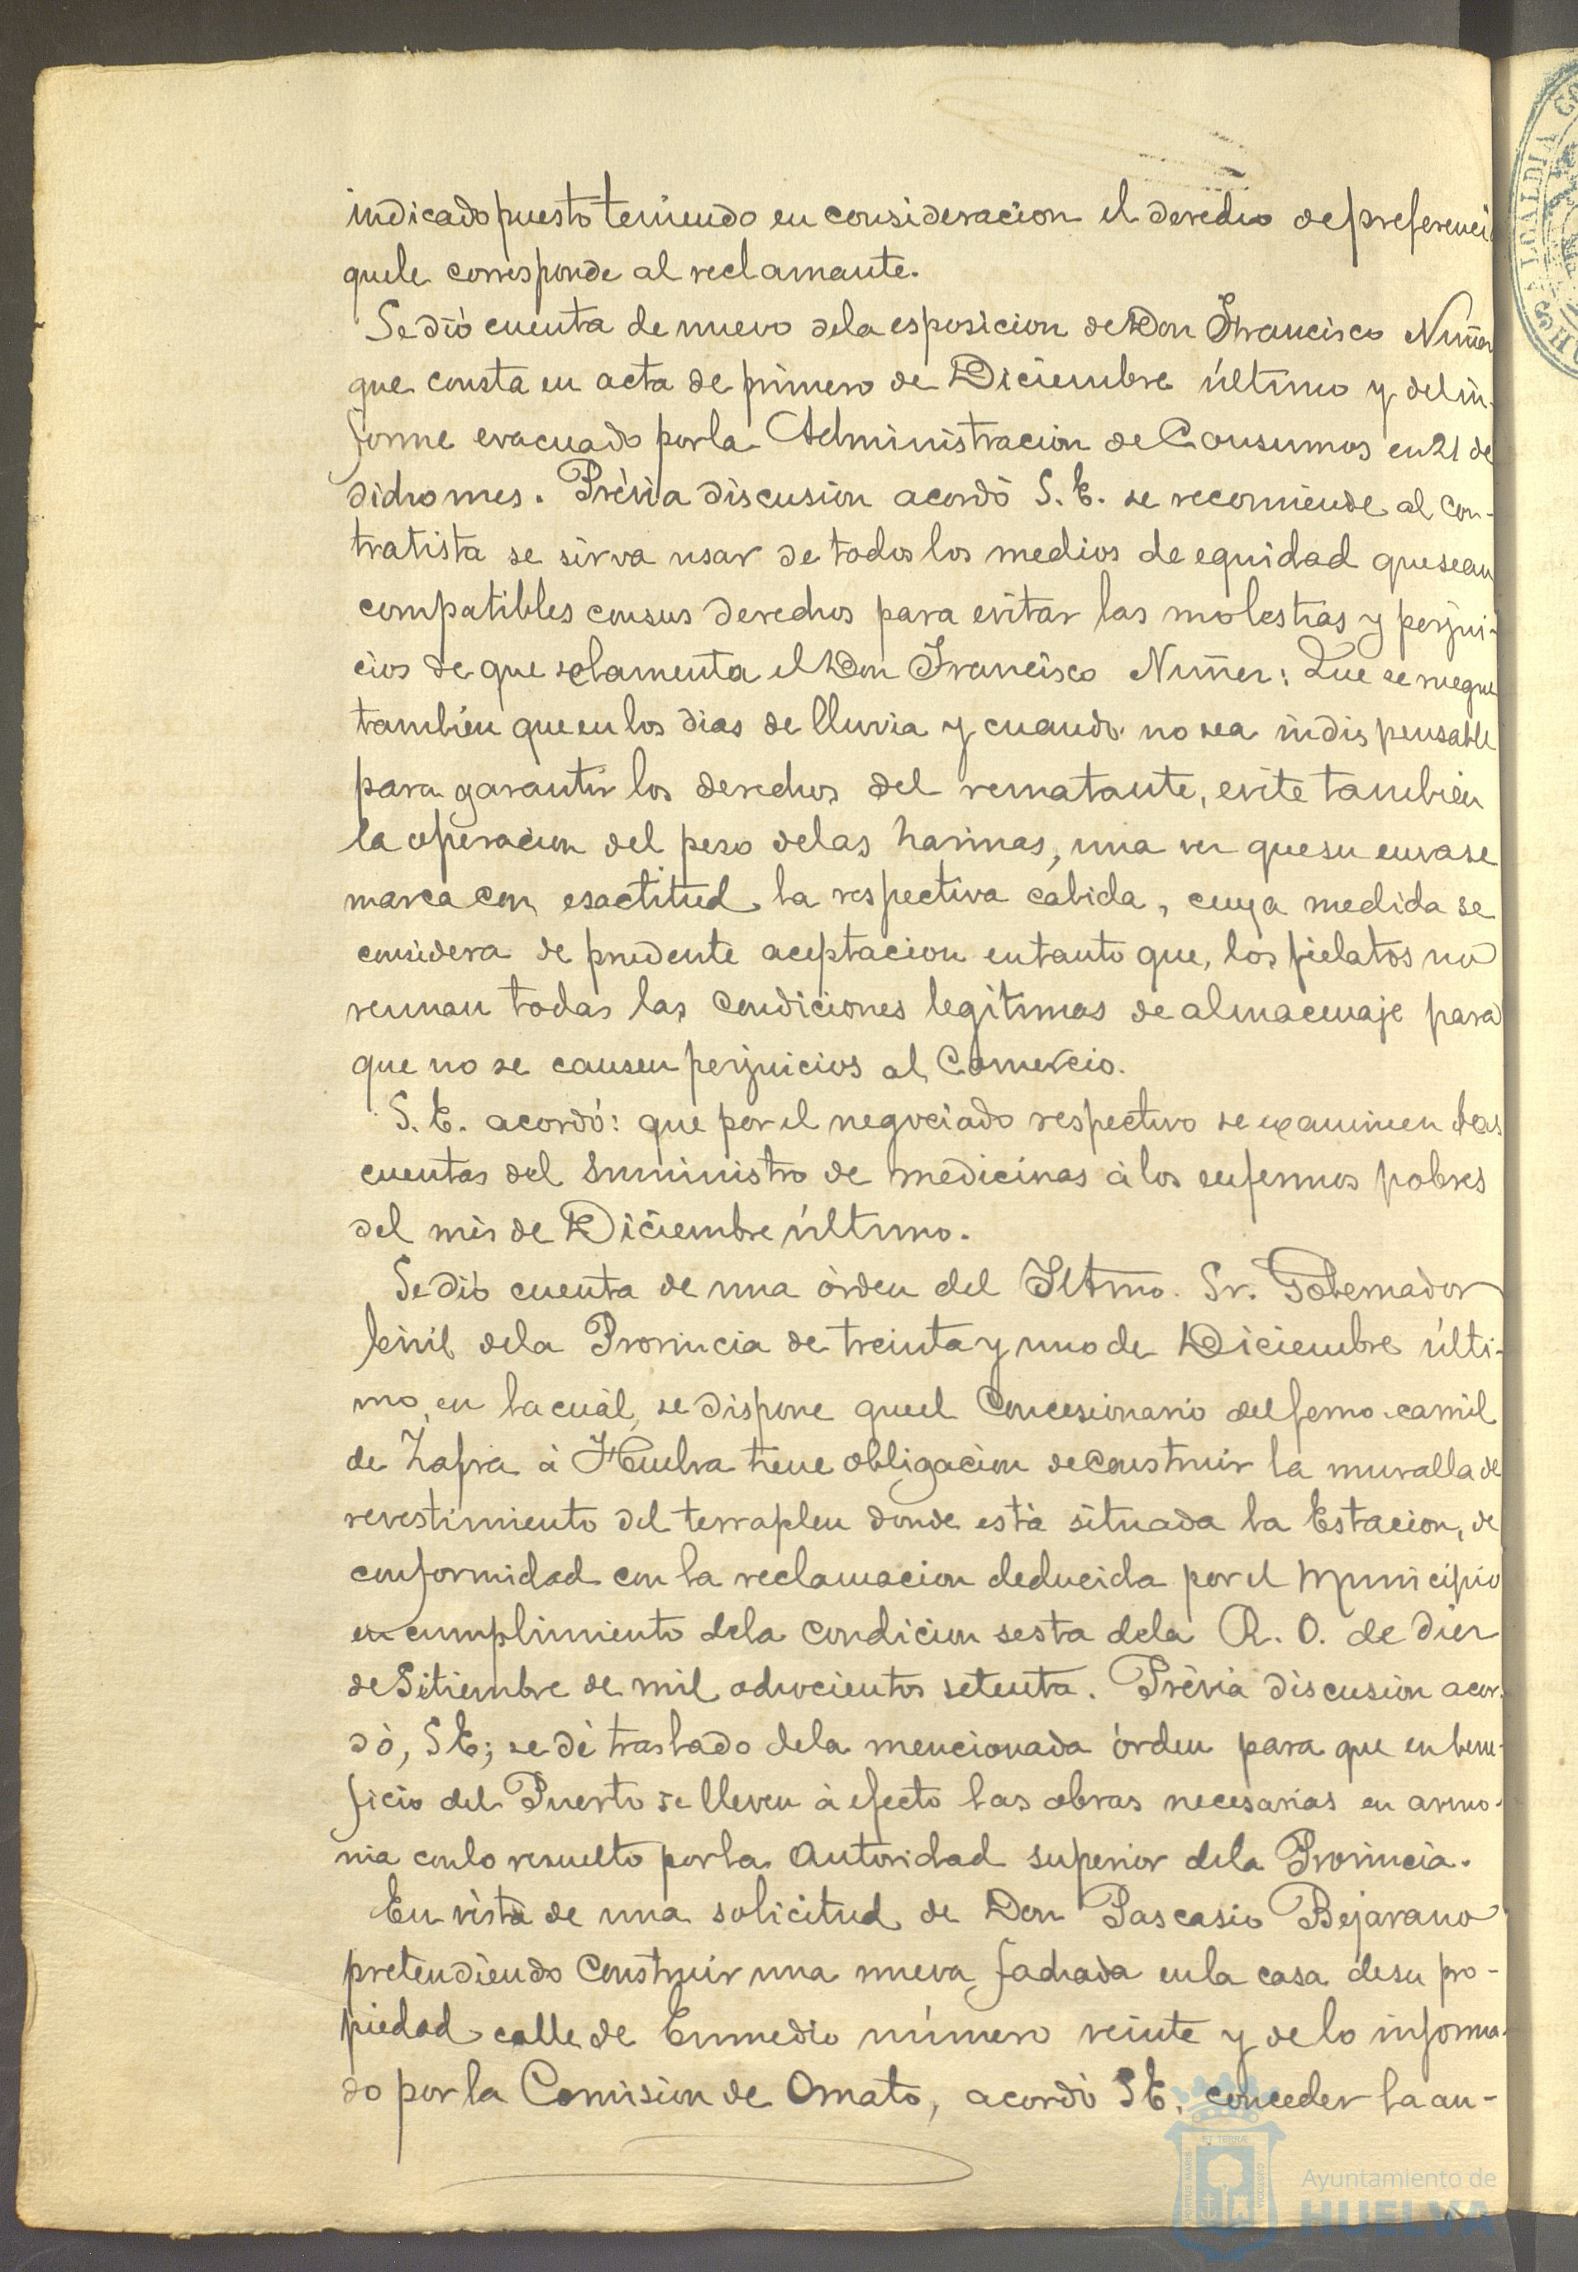 indicado puesto teniendo en consideracion el derecho de preferenci
que le corresponde al reclamante.
Se dió cuenta de nuevo de la esposicion de Don Francisco Nuñez
que consta en acta de primero de Diciembre último y del in-
forme evacuado por la Administracion de Consumos en 21 de
dicho mes. Prévia discusion acordó S. E. se recomiende al con-
tratista se sirva usar de todos los medios de equidad que sean
compatibles con sus derechos para evitar las molestias y perjui-
cios de que se lamenta el Don Francisco Nuñez: Que se ruegue
tambien que en los dias de lluvia y cuando no sea indispensable
para garantir los derechos del rematante, evite tambien
la operacion del peso de las harinas, una vez que su envase
marca con esactitud la respectiva cabida, cuya medida se
considera de prudente aceptacion en tanto que, los fielatos no
reunan todas las condiciones legítimas de almacenaje para
que no se causen perjuicios al Comercio.
S. E. acordó: que por el negociado respectivo se examinen las
cuentas del Suministro de medicinas á los enfermos pobres
del mes de Diciembre último.
Se dió cuenta de una órden del Iltmo. Sr. Gobernador
Civil de la Provincia de treinta y uno de Diciembre últi-
mo, en la cuál, se dispone que el Concesionario del ferro-carril
de Zafra á Huelva tiene obligacion de construir la muralla de
revestimiento del terraplen donde está situada la Estacion, de
conformidad con la reclamacion deducida por el Municipio
en cumplimiento de la condicion sesta de la R. O. de diez
de Setiembre de mil ochocientos setenta. Prévia discusion acor-
dó, S E; se dé traslado de la mencionada órden para que en bene-
ficio del Puerto se lleven á efecto las obras necesarias en armo-
nia con lo resuelto por la Autoridad superior de la Provincia.
En vista de una solicitud de Don Pascasio Bejarano
pretendiendo Construir una nueva fachada en la casa de su pro-
piedad calle de Enmedio número veinte y de lo informa-
do por la Comision de Ornato, acordó S E. conceder la au-
ALCALDIA CO
PORTUS MARIS ET TERRÆ CUSTODIA
Ayuntamiento de
HUELVA